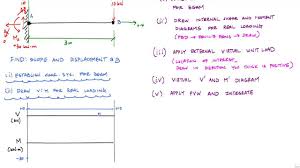 FOR BEAM
10 kN
A
B
3m
FIND: SLOPE AND DISPLACEMENT @ B
(i) ESTABLISH COOR. SYS. FOR BEAM
(ii) DRAW V+M FOR REAL LOADING
V
[kN]
M
[kN·m]
+0
+0
(ii) DRAW INTERNAL SHEAR AND MOMENT
DIAGRAMS FOR REAL LOADING
(iii) APPLY EXTERNAL VIRTUAL UNIT LOAD
LOCATION OF INTEREST,
DRAW IN DIRECTION YOU THINK IS POSITIVE
(iv) VIRTUAL V' AND M' DIAGRAM
(v) APPLY PVW AND INTEGRATE